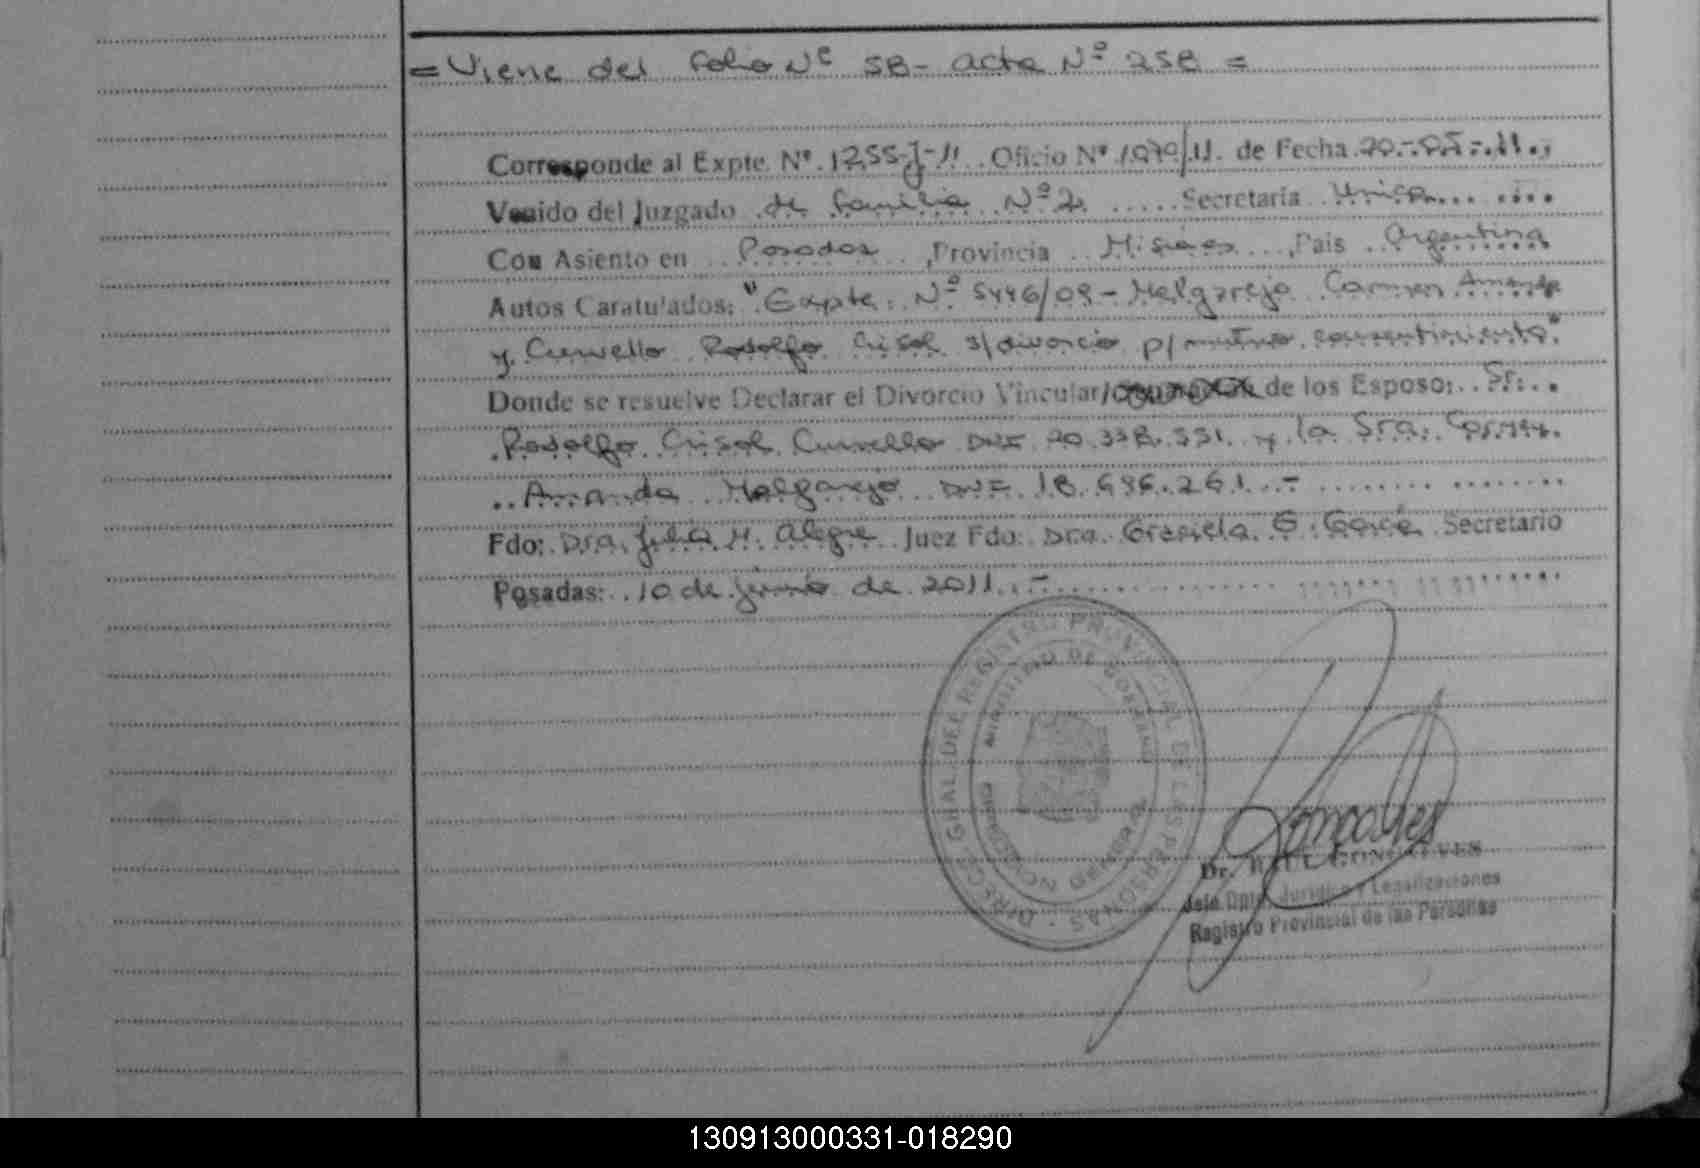 = Viene del folio Nº 58 - acta Nº 258 =
Corresponde al Expte. Nº 1255-J-11 Oficio Nº 1070/11. de Fecha 20-05-11.,
Venido del Juzgado de familia Nº 2 Secretaría Unica
Con Asiento en Posadas, Provincia Misiones, País Argentina
Autos Caratulados: "Expte. Nº 5446/09 - Melgarejo Carmen Amanda
y Curvello Rodolfo Crisol s/divorcio p/mutuo consentimiento"
Donde se resuelve Declarar el Divorcio Vincular/ de los Esposo: Sr.
Rodolfo Crisol Curvello DNI 20.338.551 y la Sra. Carmen
Amanda Melgarejo DNI 18.696.261.-
Fdo: Dra. Julia M. Alegre Juez Fdo: Dra. Graciela G. García Secretario
Posadas: 10 de junio de 2011.-
DIRECC. GRAL. DEL REGISTRO PROVINCIAL DE LAS PERSONAS
MINISTERIO DE GOBIERNO
Dr. RAUL GONCALVES
Jefe Dpto. Jurídico y Legalizaciones
Registro Provincial de las Personas
130913000331-018290